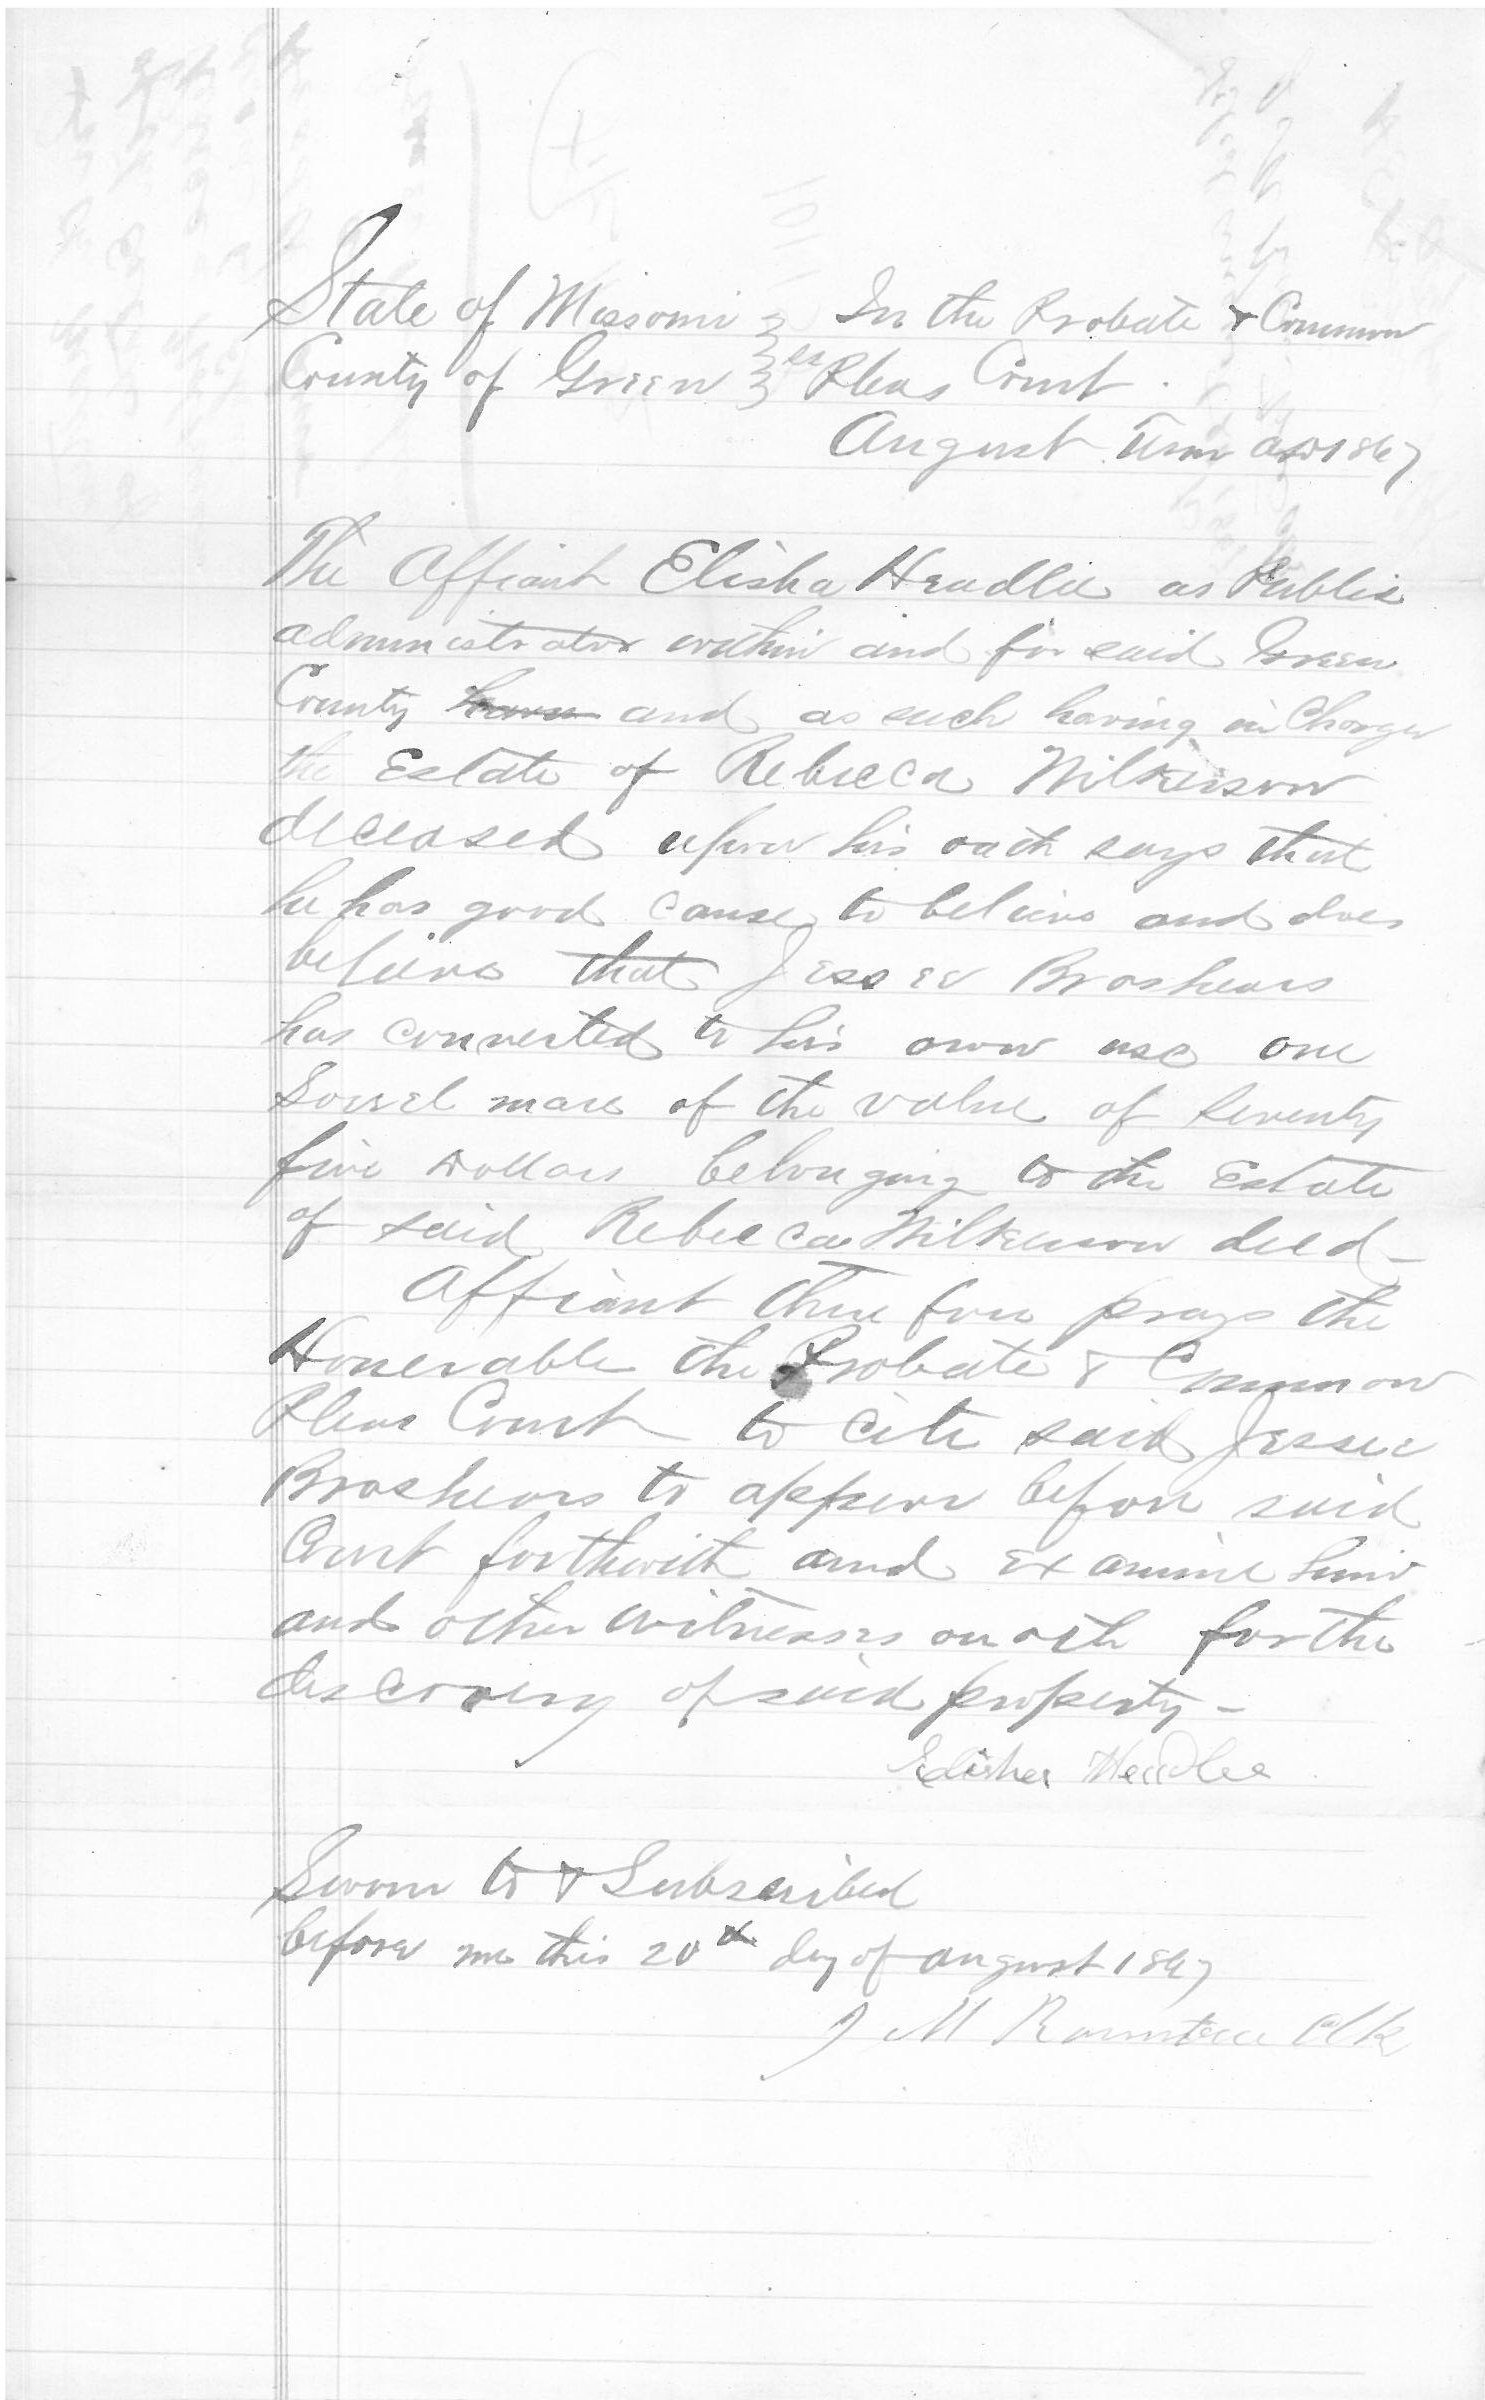 State of Missouri } In the Probate & Common
County of Green } ss Pleas Court.
August Term AD 1867
The Affiant Elisha Headlee as Public
administrator within and for said Green
County and as such having in Charge
the Estate of Rebecca Wilkerson
deceased upon his oath says that
he has good cause to believe and does
believe that Jesse Brashears
has converted to his own use one
Sorrel mare of the value of Seventy
five Dollars belonging to the Estate
of said Rebecca Wilkerson decd -
Affiant therefore prays the
Honerable the Probate & Common
Pleas Court to cite said Jessee
Brashears to appear before said
Court forthwith and examine him
and other witnesses on oath for the
discovery of said property -
Elisha Headlee
Sworn to & Subscribed
before me this 20th day of august 1867
J M Rountree Clk